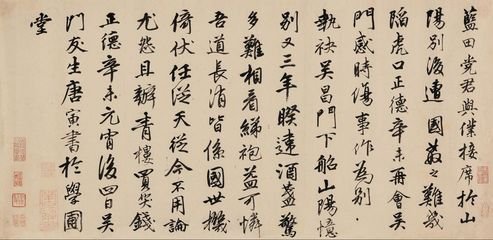 藍田党君與僕接席於山
陽別後遭國之難幾
陷虎口正德辛未再會吳
門感時傷事作為別
執袂吳昌門下船山陽憶
別又三年睽違酒盞驚
多難相看綈袍益可憐
吾道長消皆係國世機
倚伏任從天從今不用論
尤怨且辦青樓買笑錢
正德辛未元宵後四日吳
門友生唐寅書於學圃
堂